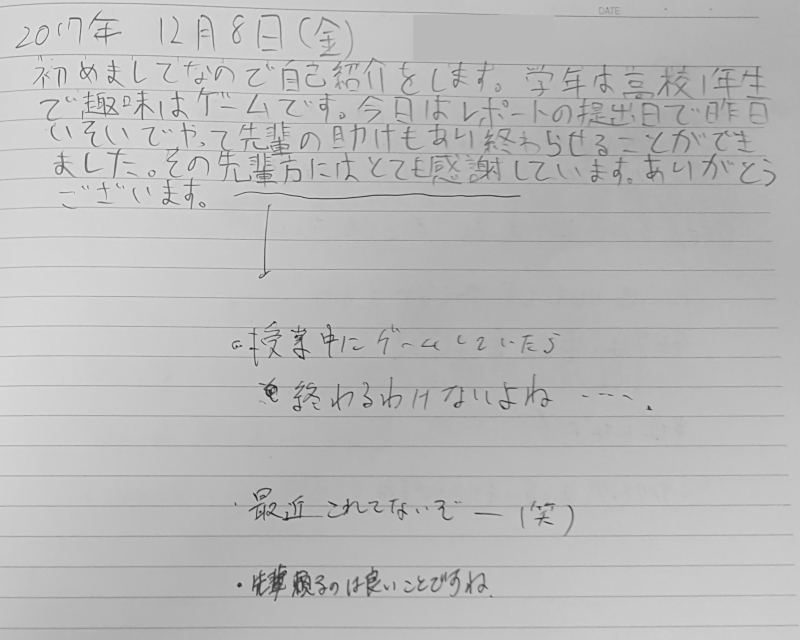 DATE
2017年 12月8日(金)
初めましてなので自己紹介をします。学年は高校1年生
で趣味はゲームです。今日はレポートの提出日で昨日
いそいでやって先輩の助けもあり終わらせることができ
ました。その先輩方にはとても感謝しています。ありがとう
ございます。
授業中にゲームしていたら
終わるわけないよね ‥‥.
・最近これてないぞー(笑)
・先輩頼るのは良いことですね.